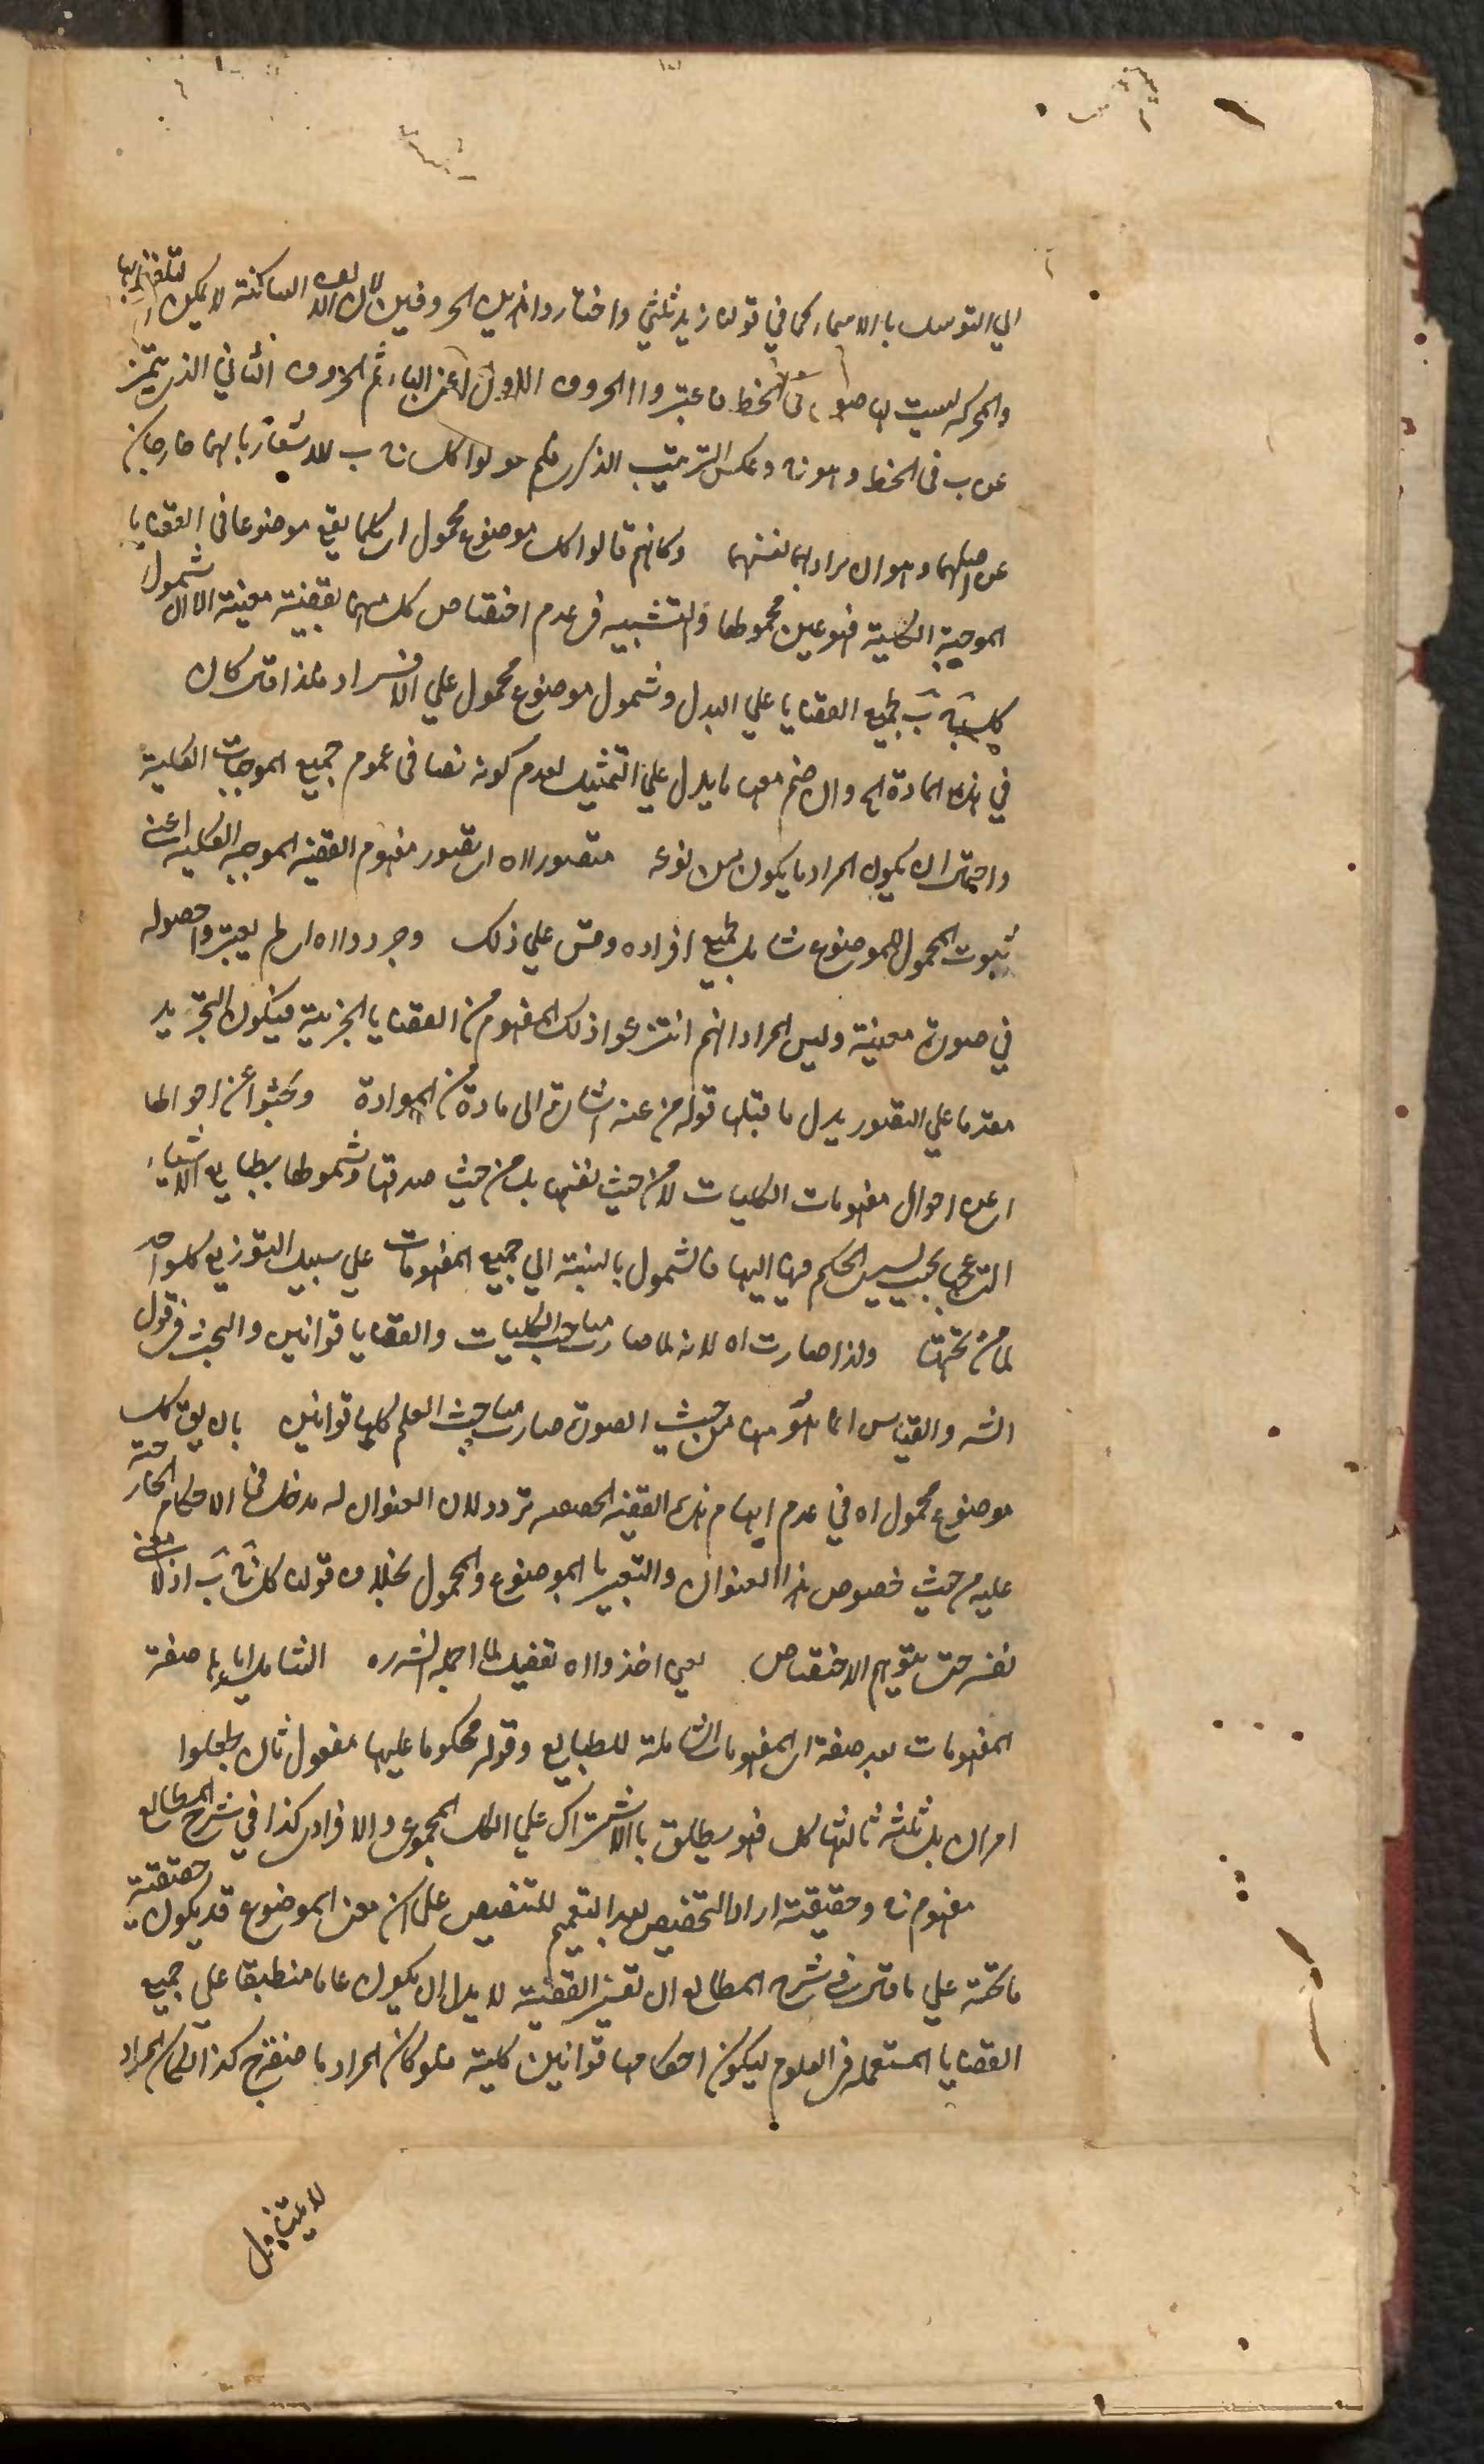 الي التوسل بالاسماء كما في قولنا زيد ثلثي واختاروا هذين الحرفين لان الالف الساكنة لا يمكن التلفظ بها
والحركة ليست لها صورة في الخط فاعتبروا الحرف الاول اعني الباء ثم الحرف الثاني الذي يتميز
عن ب في الخط وهو ج وعكس الترتيب الذكري فلم يقولوا كل ج ب للاشعار بانهما خارجان
عن اصلهما وهو ان يراد بهما نفسهما وكانهم قالوا كل موضوع محمول اي كلما يقع موضوعا في القضايا
الموجبة الكلية فهو عين محمولها والتشبيه في عدم اختصاص كل منهما بقضية معينة الا ان شمول
كل ج ب لجميع القضايا علي البدل وشمول موضوع محمول علي الافراد فلذا قال كان
في هذه المادة الخ وان ضم معها ما يدل علي التمثيل لعدم كونه نصا في عموم جميع الموجبات الكلية
واحتمال ان يكون المراد ما يكون من نوعه فتصوروا اه اي تصور مفهوم القضية الموجبة الكلية اعني
ثبوت المحمول للموضوع شامل لجميع افراده وقس علي ذلك وجردوا اه اي لم يعتبروا حصوله
في صورة معينة وليس المراد انهم انتزعوا ذلك المفهوم من القضايا الجزئية فيكون التجريد
مقدما علي التصور يدل ما قبلها قوله من عنه اشارة الى مادة من المواد وبحثوا عن احوالها
اي عن احوال مفهومات الكليات لا من حيث نفسها بل من حيث صدقها وشمولها بطبايع الاشياء
التي تحتها بحيث يسري الحكم فيها اليها فالشمول بالنسبة الي جميع المفهومات علي سبيل التوزيع كل واحد
لما من تحتها ولذا صارت اه لانه لما صار مباحث الكليات والقضايا قوانين والبحث في قول
الشارح والقياس انما هو منها من حيث الصورة صارت مباحث العلم كلها قوانين بان يقال كل
موضوع محمول اه في عدم ايهام هذه القضية الخصوصية تردد لان العنوان له مدخل في الاحكام الجارية
عليه من حيث خصوص هذا العنوان والتعبير بالموضوع والمحمول بخلاف قولنا كل ج ب اذ لا معنى
نفسه حتى يتوهم الاختصاص يعني اخذوا اه تفصيل لما اجمله الشارح الشاملة صفة
المفهومات بعد صفة اي المفهومات الشاملة للطبايع وقوله محكوما عليها مفعول ثان لجعلوا
امران بل ثلثة ثالثها كل فهو يطلق بالاشتراك علي الكل المجموعي والافرادي كذا في شرح المطالع
مفهوم ج وحقيقته اراد بالتخصيص بعد التعميم للتنصيص على ان معنى الموضوع قد يكون حقيقة
ما تحته علي ما قال في شرح المطالع ان تفسير القضية لا بد ان يكون عاما منطبقا علي جميع
القضايا المستعملة في العلوم ليكون احكامها قوانين كلية فلو كان المراد ما
لا يتناول